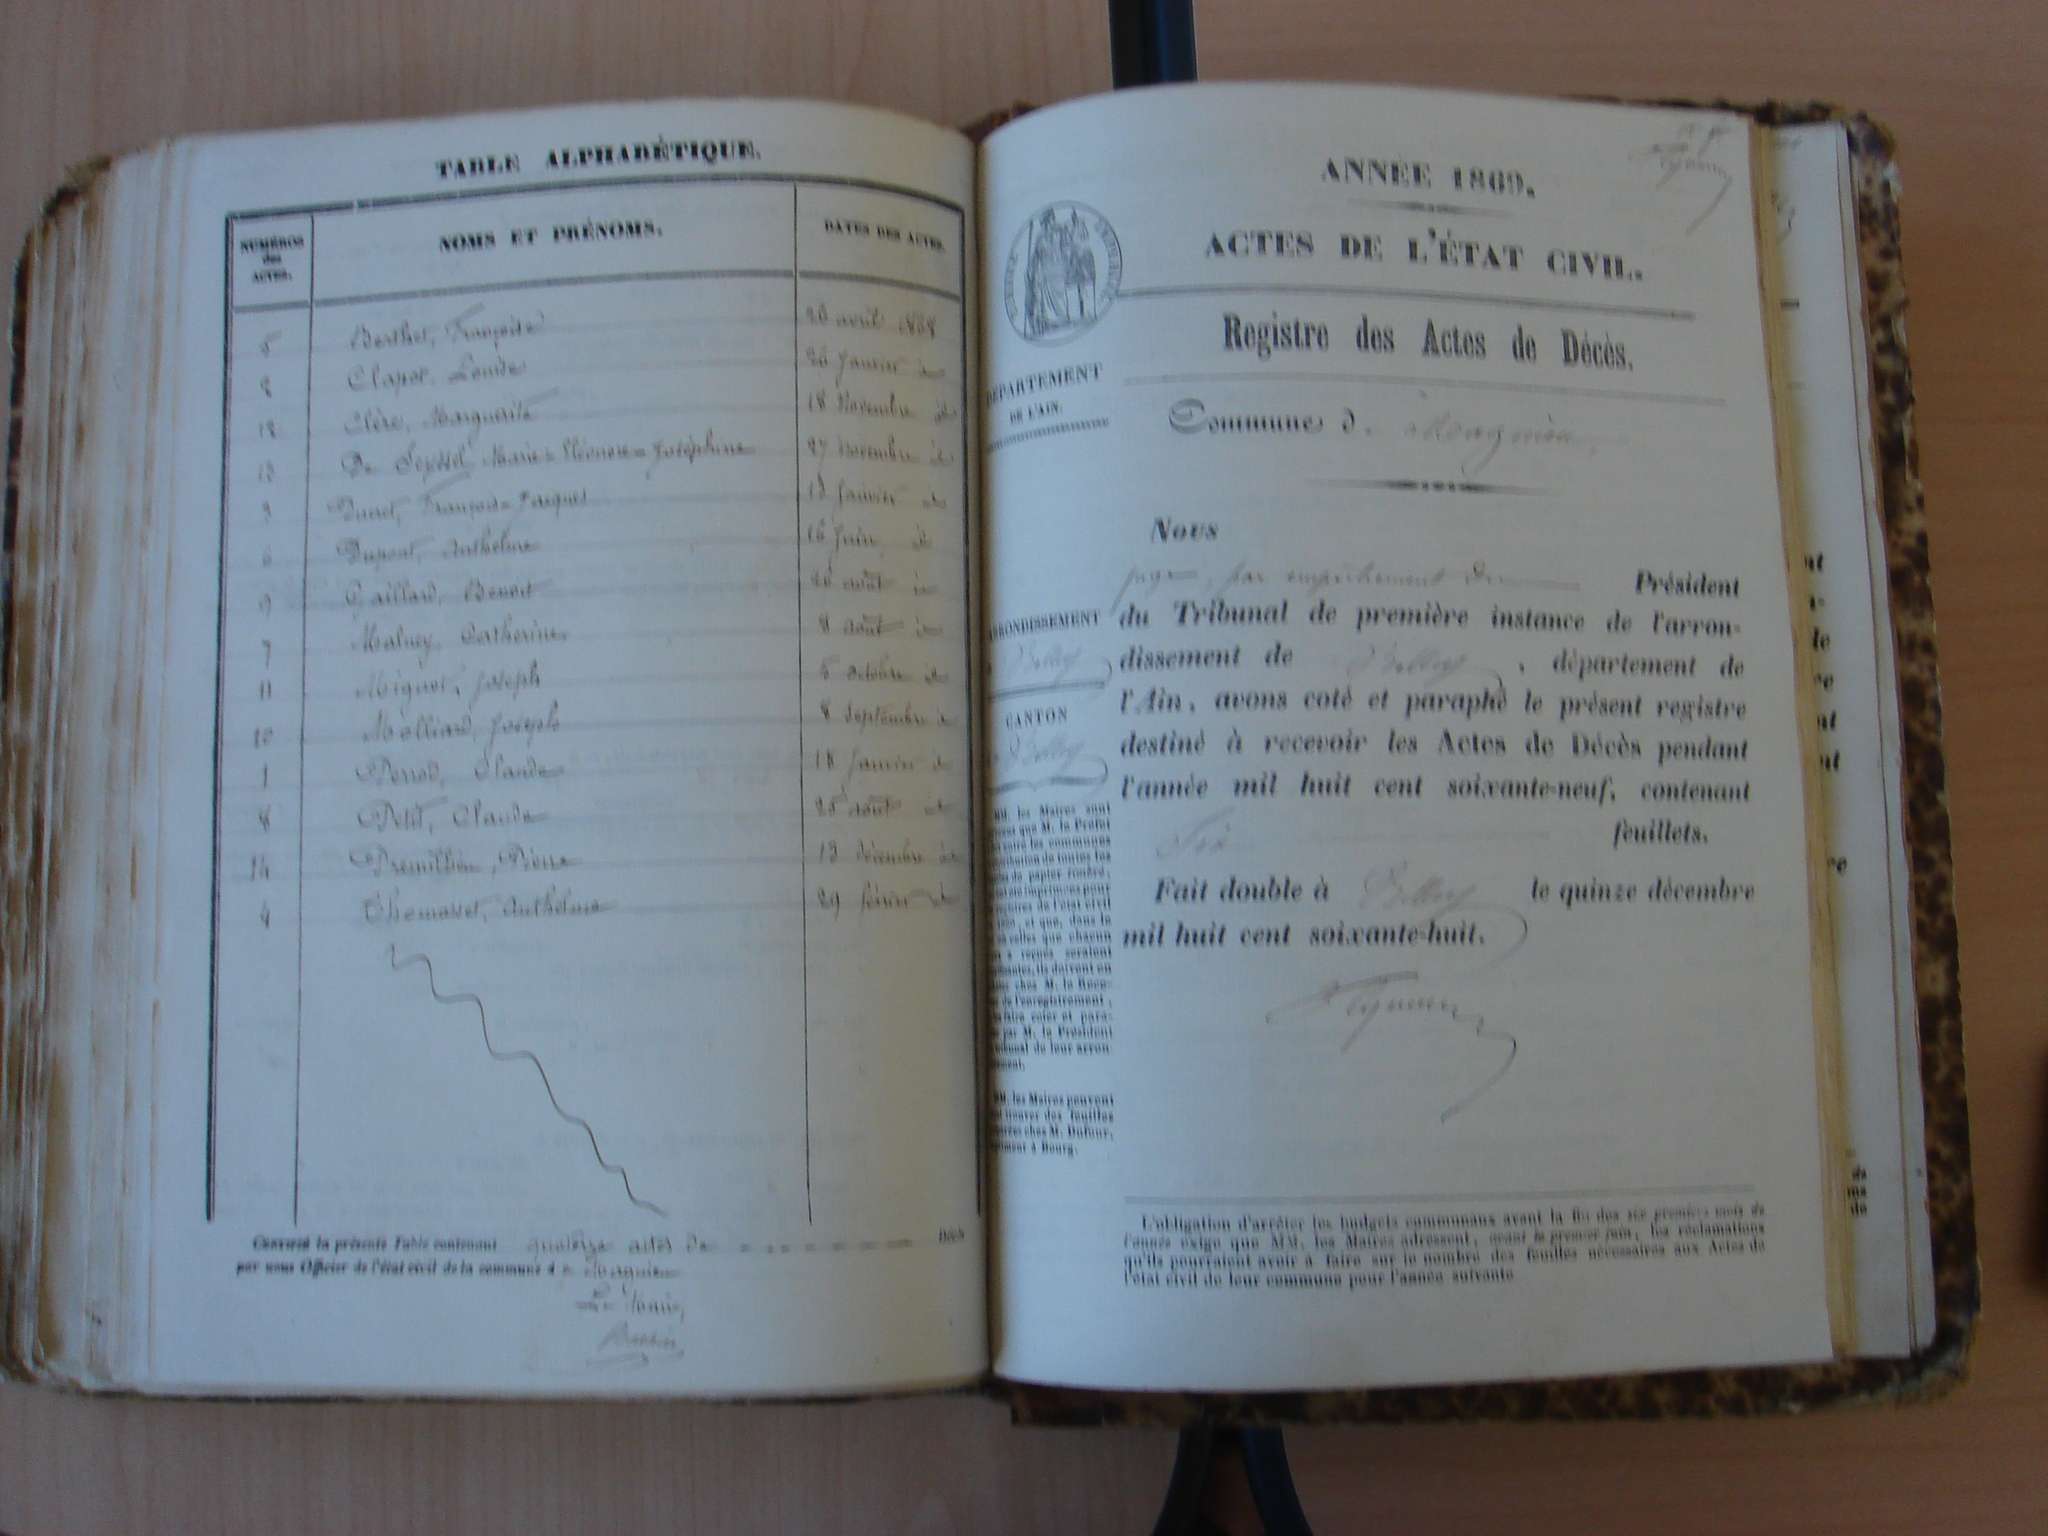 TABLE ALPHABÉTIQUE.
NUMÉROS
des
ACTES.
NOMS ET PRÉNOMS.
DATES DES ACTES.
5 Berthet, Françoise 26 avril 1868
2 Clapot, Louise 26 Janvier id
12 Clère, Marguerite 18 Novembre id
13 De Seyssel Marie-Eléonore-Joséphine 27 novembre id
3 Ducret, François-Jacques Janvier id
6 Dupont, Anthelme 16 Juin id
9 Gaillard, Benoit 26 août id
7 Catherine 8 août id
11 Mignot, Joseph 5 octobre id
10 Molliard, Joseph 8 Septembre id
1 Perrod, Claude 18 Janvier id
8 Petit, Claude 25 août id
14 Premillieu, Pierre 13 décembre id
4 Thomasset, Anthelme 29 février id
CERTIFIÉ la présente Table contenant quatorze actes de Décès
par nous Officier de l'état civil de la commune de Magnieu
Le Maire,
ANNÉE 1869.
ACTES DE L'ÉTAT CIVIL.
Registre des Actes de Décès.
DÉPARTEMENT
DE L'AIN.
Commune de Magnieu.
Nous
juge, par empêchement du Président
du Tribunal de première instance de l'arron-
dissement de Belley, département de
l'Ain, avons coté et paraphé le présent registre
destiné à recevoir les Actes de Décès pendant
l'année mil huit cent soixante-neuf, contenant
Six feuillets.
Fait double à Belley le quinze décembre
mil huit cent soixante-huit.
ARRONDISSEMENT
Belley
CANTON
Belley
MM. les Maires sont
que M. le Préfet
les communes
de toutes les
de papier timbré,
imprimées pour
de l'état civil
et que, dans la
celles que chacun
a reçues seraient
ils doivent en
chez M. le Rece-
de l'enregistrement,
faire coter et para-
par M. le Président
Tribunal de leur arron-
MM. les Maires peuvent
trouver des feuilles
chez M. Dufour,
à Bourg.
L'obligation d'arrêter les budgets communaux avant la fin des six premiers mois de
l'année exige que MM. les Maires adressent, avant le premier juin, les réclamations
qu'ils pourraient avoir à faire sur le nombre des feuilles nécessaires aux Actes de
l'état civil de leur commune pour l'année suivante